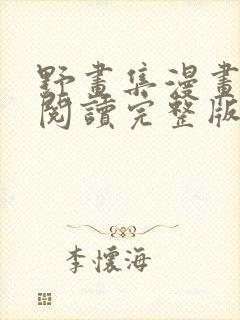 野畫集漫畫
閱讀完整版
李懷海